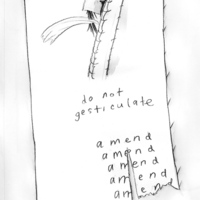 do not
gesticulate
amend
amend
amend
amend
amen